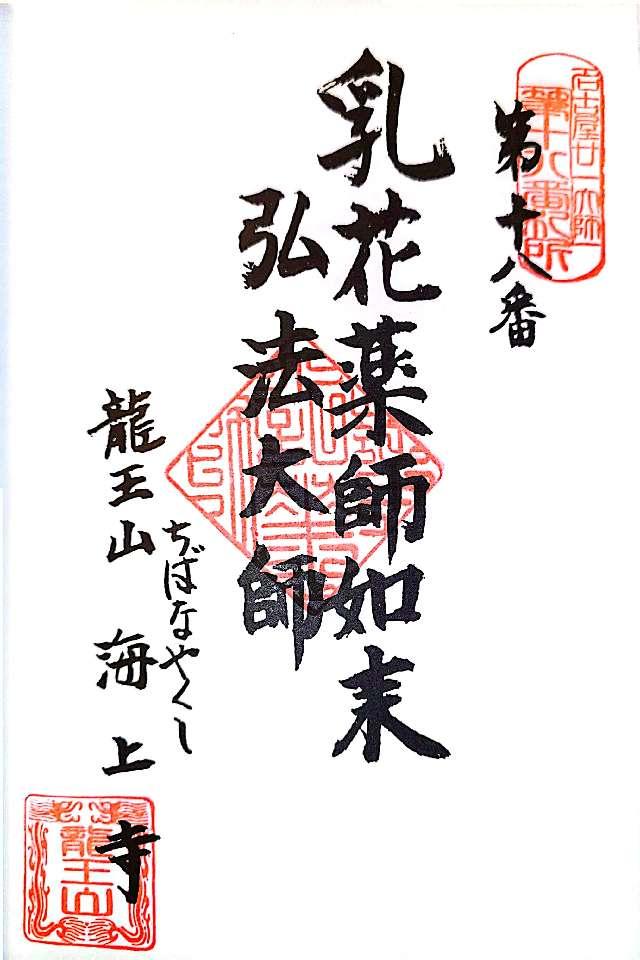 名古屋廿一大師
第十八番札所
第十八番
乳花薬師如来
弘法大師
ぢばなやくし
龍王山 海上寺
龍王山